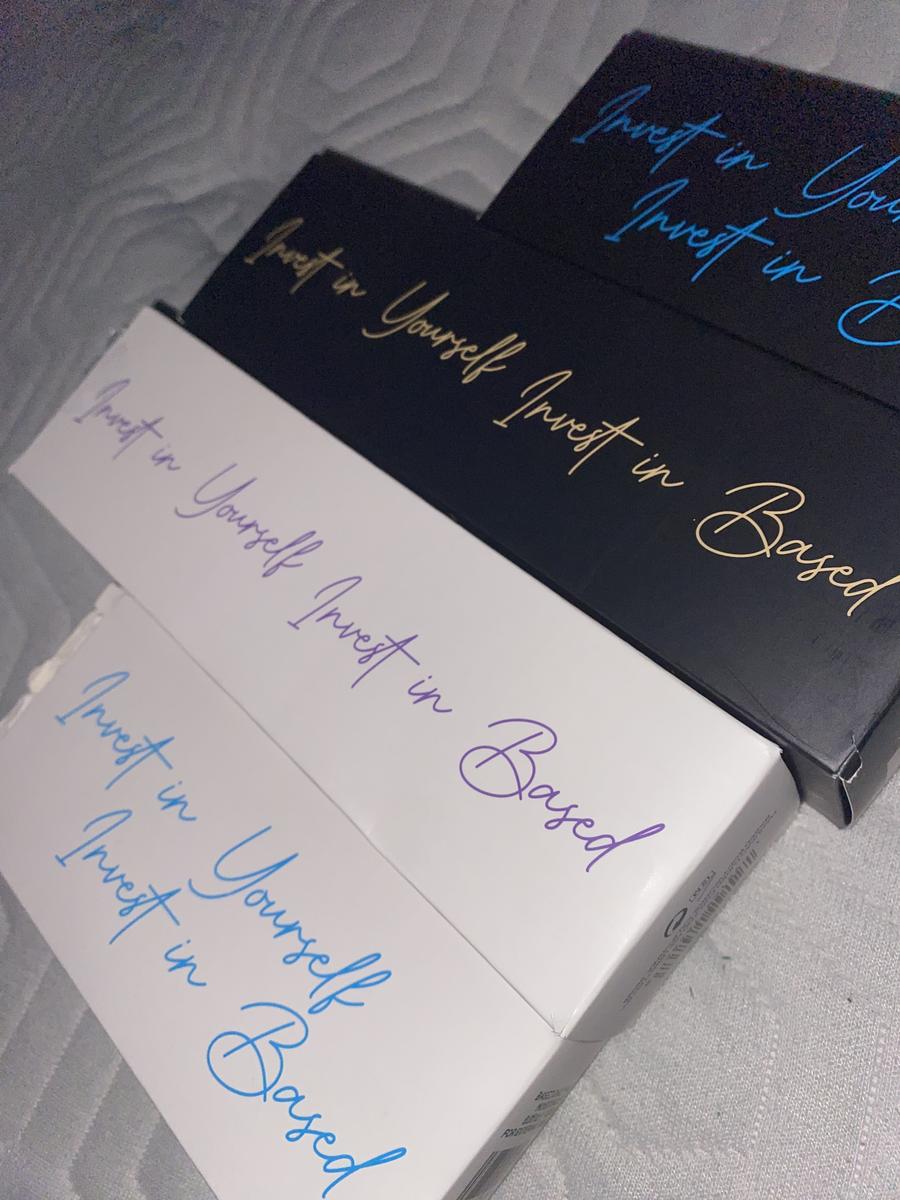 Invest in
Invest in
Invest in Yourself Invest in Based
Invest in Yourself Invest in Based
Invest in Yourself
Invest in Based